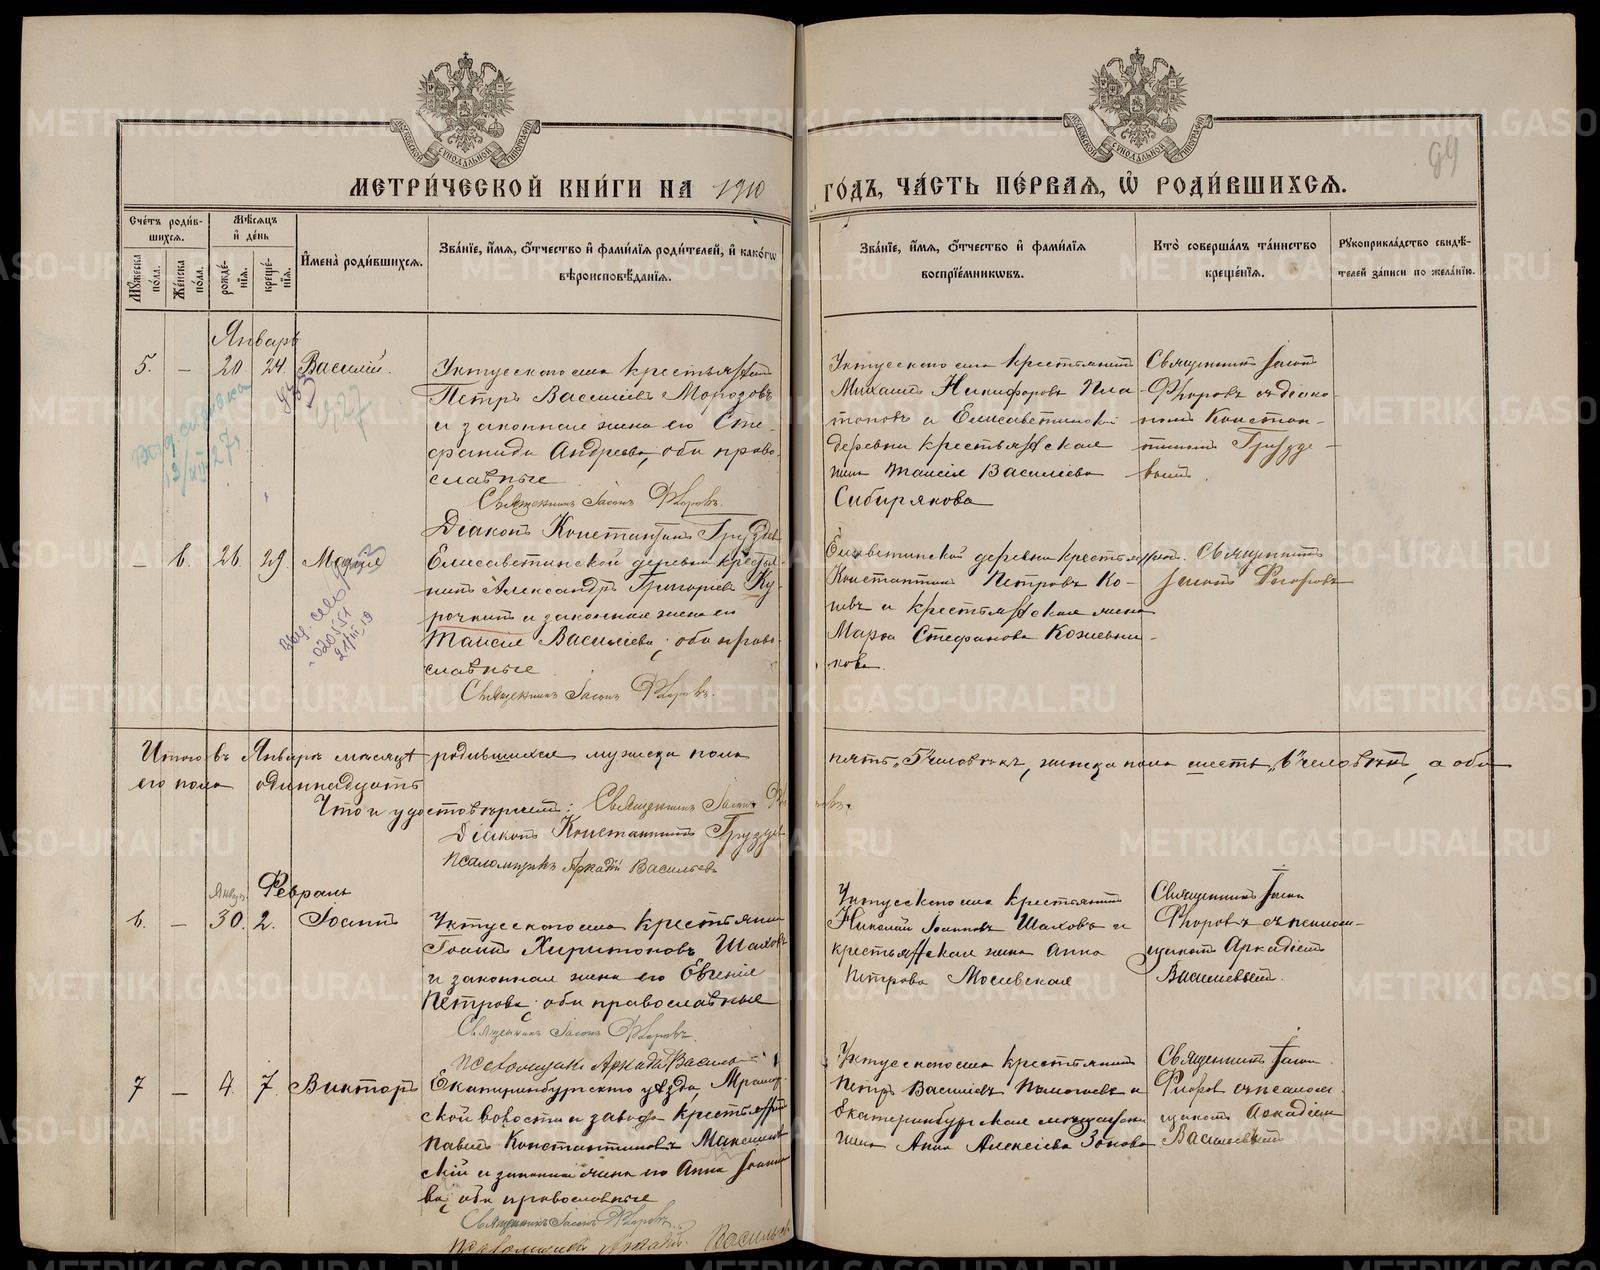 МЕТРИ́ЧЕСКОЙ КНИ́ГИ НА 1910
ГО́ДЪ, ЧА́СТЬ ПЕ́РВАЯ, Ѡ҃ РОДИ́ВШИХСЯ.
99
МОСКОВСКОЙ СУНОДАЛЬНОЙ ТИПОГРАФІИ
МОСКОВСКОЙ СУНОДАЛЬНОЙ ТИПОГРАФІИ
Сче́тъ роди́в-
шихся.
Мꙋ́жеска по́ла.
Же́нска по́ла.
Мѣ́сяцъ
и҆ де́нь
рожде́-
нїя.
креще́-
нїя.
И҆мена̀ роди́вшихся.
Зва́нїе, и҆́мя, ѻ҆́тчество и҆ фами́лїя роди́телей, и҆ како́гѡ
вѣроисповѣ́данїя.
Зва́нїе, и҆́мя, ѻ҆́тчество и҆ фами́лїя
воспрїе́мниковъ.
Кто̀ соверша́лъ та́инство
креще́нїя.
Рꙋкоприкла́дство свидѣ́-
телей за́писи по жела́нїю.
Январь
5. — 20. 24. Василій.
Уктусскаго села крестьянинъ
Петръ Василіевъ Морозовъ
и законная жена его Сте-
фанида Андреева, оба право-
славные
Священникъ Іасонъ Флоровъ.
Діаконъ Константинъ Груздевъ
Уктусскаго села крестьянинъ
Михаилъ Никифоровъ Пла-
тоновъ и Елисаветинской
деревни крестьянская
Таисія Василіева
Сибирякова
Священникъ Іасонъ
Флоровъ съ діако-
номъ Констан-
тиномъ Грузде-
вымъ.
927
13/XII 27г.
— 6. 26. 29. Марія
Елисаветинской деревни кресть-
нинъ Александръ Григоріевъ Ку-
рочкинъ и законная жена его
Таисія Василіева; оба право-
славные
Священникъ Іасонъ Флоровъ.
Елисаветинской деревни крестьянинъ
Константинъ Петровъ Ко-
невъ и крестьянская жена
Марѳа Стефанова Кожевни-
кова.
Священникъ
Іасонъ Флоровъ
Итого въ Январѣ мѣсяцѣ родившихся мужска пола пять „5" человѣкъ, женска пола шесть „6" человѣкъ, а обо-
его пола одиннадцать
Что и удостовѣряемъ: Священникъ Іасонъ Флоровъ.
Діаконъ Константинъ Груздевъ
Псаломщикъ Аркадій Васильевъ
Январь Февраль
6. — 30. 2. Іоаннъ
Уктусскаго села крестьянинъ
Іоаннъ Харитоновъ Шаховъ
и законная жена его Евгенія
Петрова; оба православные
Священникъ Іасонъ Флоровъ.
Псаломщикъ Аркадій Васильевъ
Уктусскаго села крестьянинъ
Николай Іоанновъ Шаховъ и
крестьянская жена Анна
Петрова Московская
Священникъ Іасонъ
Флоровъ съ псалом-
щикомъ Аркадіемъ
Васильевымъ.
7 — 4. 7. Викторъ
Екатеринбургскаго уѣзда, Мрамор-
ской волости и завода крестьянинъ
Павелъ Константиновъ
и законная жена его Анна Іоанно-
ва; оба православные
Священникъ Іасонъ Флоровъ.
Псаломщикъ Аркадій Васильевъ
Уктусскаго села крестьянинъ
Петръ Василіевъ и
Екатеринбургская мѣщанская
Анна Алексіева Зонова
Священникъ Іасонъ
Флоровъ съ псалом-
щикомъ Аркадіемъ
Васильевымъ
METRIKI.GASO-URAL.RU